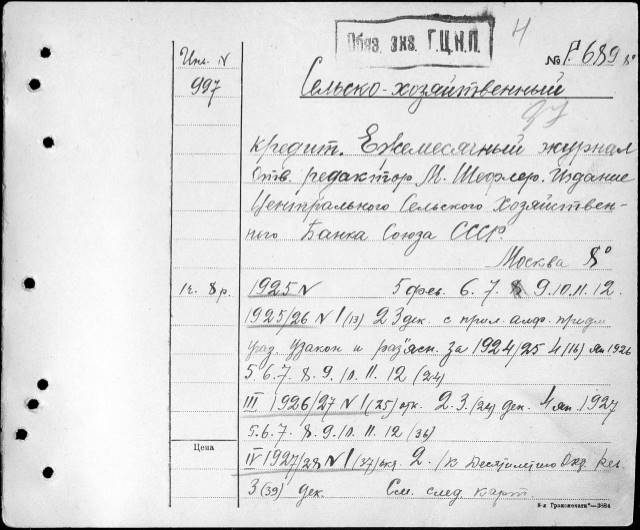 Обяз. экз. Г.Ц.К.П.
Н
№ Р. 689 8°
Инв. N
997
Сельско-хозяйственный
97
кредит. Ежемесячный журнал
Отв. редактор М. Шефлер. Издание
Центрального Сельского Хозяйствен-
ного Банка Союза ССР.
Москва 8°
1г. 8р.
1925 N 5 фев. 6. 7. 8 9. 10. 11. 12
1925/26 N 1 (13) 23 дек. с прил. алф. предм
указ. узакон и раз'ясн. за 1924/25 4 (16) ян 1926
5. 6. 7. 8. 9. 10. 11. 12 (24)
III 1926/27 N 1 (25) окт. 2. 3. (27) дек. 4 ян. 1927
5. 6. 7. 8. 9. 10. 11. 12 (36)
Цена
IV 1927/28 N 1 (37) окт. 2. /к Десятилетию Окт. рев.
3 (39) дек. См. след. карт.
8-я Гранопечать"—3684